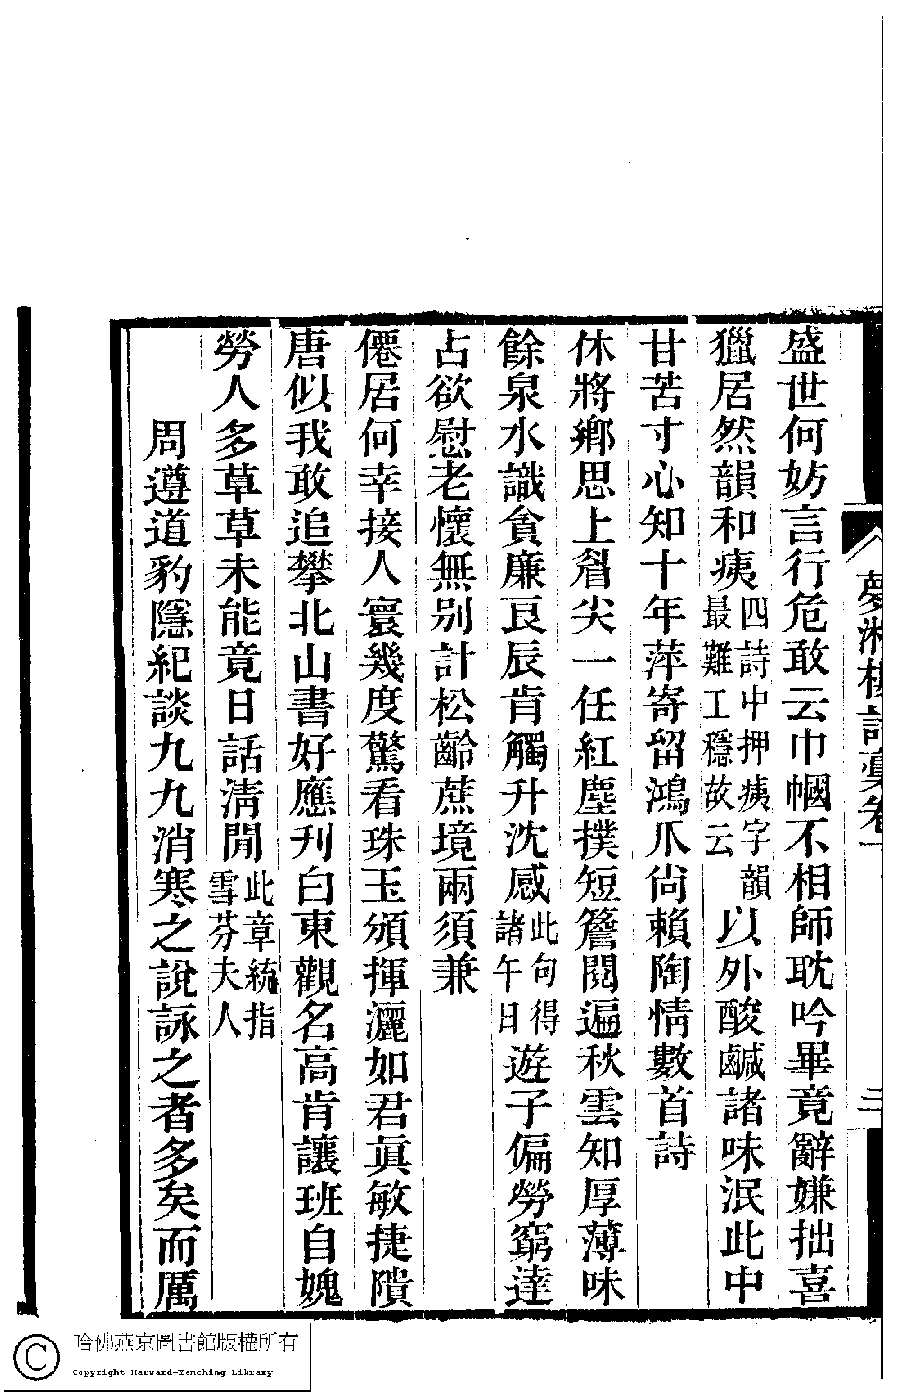 夢湘樓詩藳卷一
二
盛世何妨言行危敢云巾幗不相師耽吟畢竟辭嫌拙喜
獵居然韻和痍四詩中押痍字韻最難工穩故云以外酸鹹諸味泯此中
甘苦寸心知十年萍寄留鴻爪尙賴陶情數首詩
休將鄉思上眉尖一任紅塵撲短簷閱遍秋雲知厚薄味
餘泉水識貪廉良辰肯觸升沈感此句得諸午日遊子偏勞窮達
占欲慰老懷無別計松齡蔗境兩須兼
僊居何幸接人寰幾度驚看珠玉頒揮灑如君眞敏捷隤
唐似我敢追攀北山書好應刋白東觀名高肯讓班自媿
勞人多草草未能竟日話淸閒此章統指雪芬夫人
周遵道豹隱紀談九九消寒之說詠之者多矣而厲
哈佛燕京圖書館版權所有
Copyright Harvard-Yenching Library